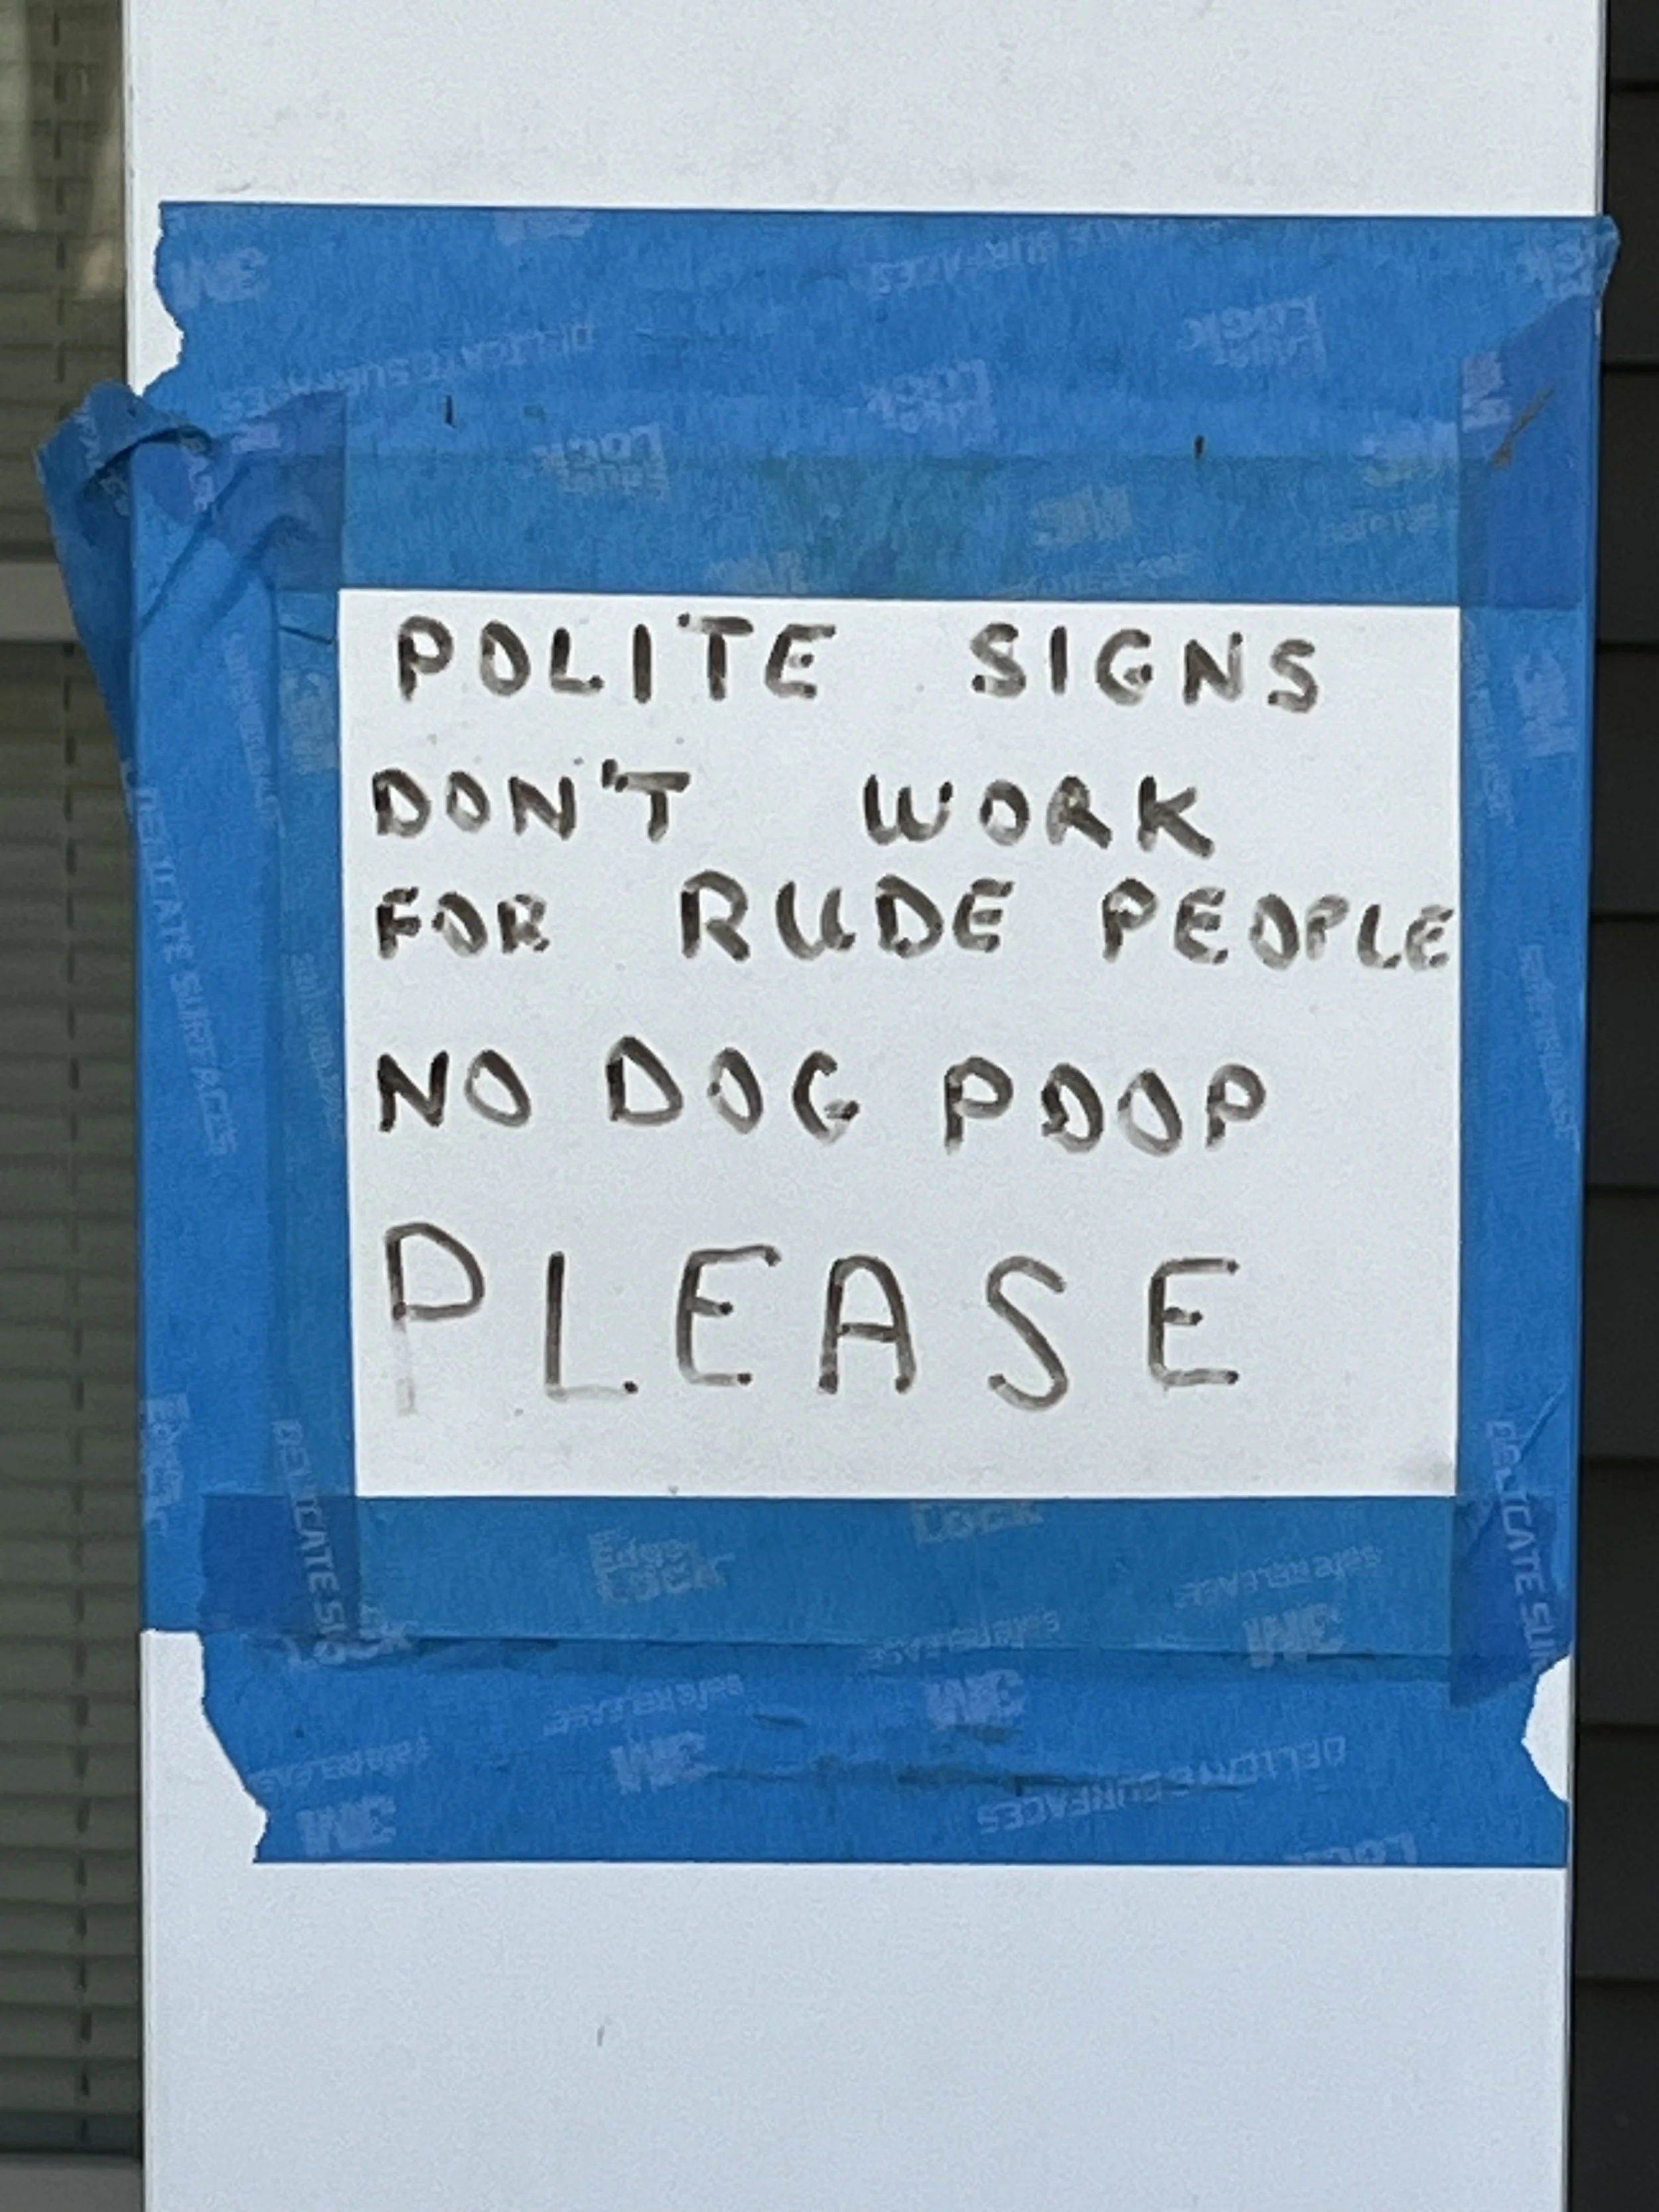 POLITE SIGNS
DON'T WORK
FOR RUDE PEOPLE
NO DOG POOP
PLEASE